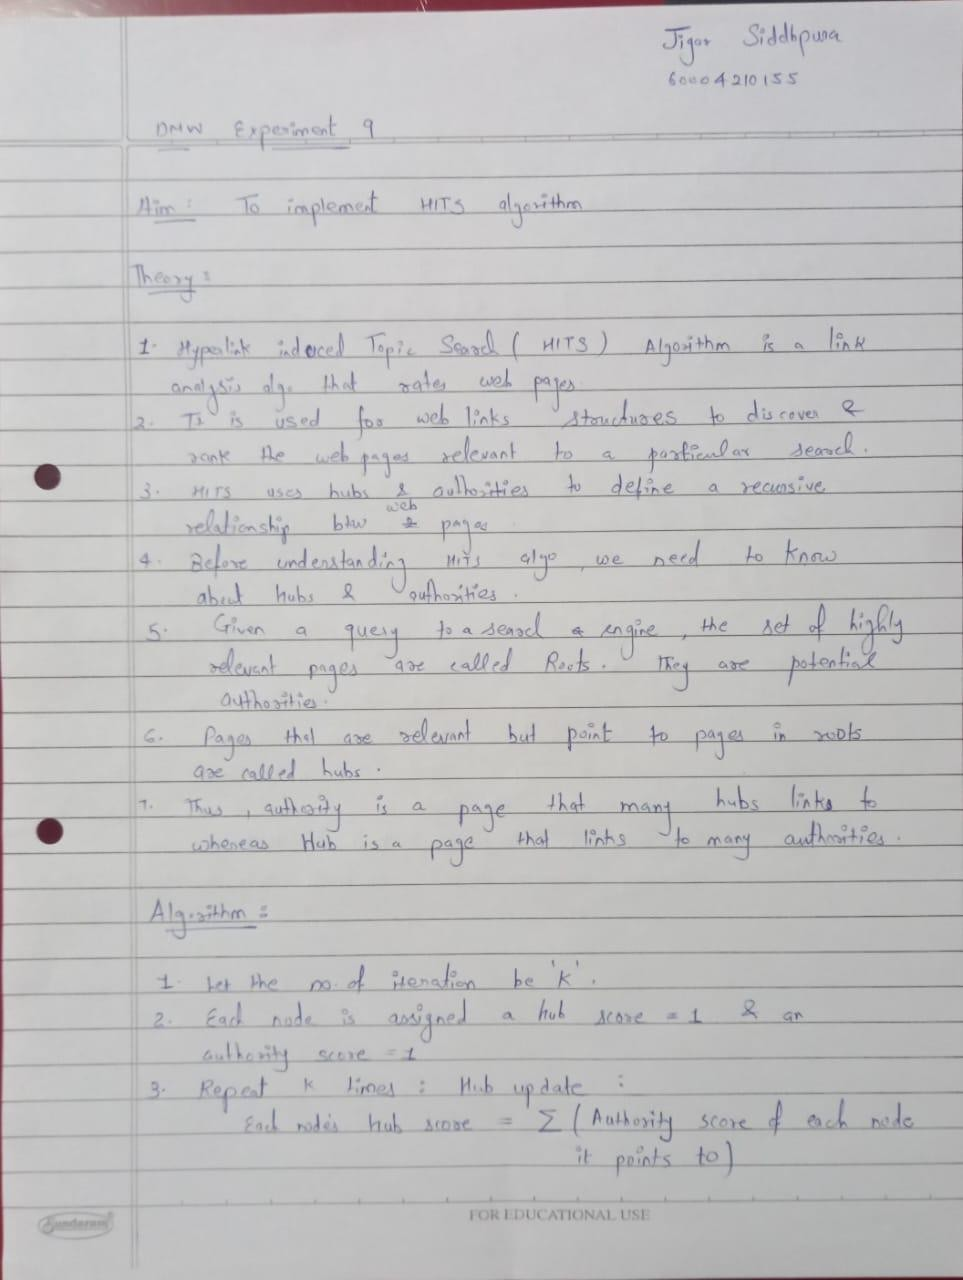 Jigar Siddhpura
60004210155
DMW Experiment 9
Aim : To implement HITS algorithm
Theory :
1. Hyperlink induced Topic Search ( HITS ) Algorithm is a link
analysis algo that rates web pages.
2. It is used for web links structures to discover &
rank the web pages relevant to a particular search.
3. HITS uses hubs & authorities to define a recursive
relationship btw web pages
4. Before understanding HITS algo, we need to know
about hubs & authorities.
5. Given a query to a search engine, the set of highly
relevant pages are called Roots. They are potential
authorities.
6. Pages that are relevant but point to pages in roots
are called hubs.
7. Thus, authority is a page that many hubs links to
whereas Hub is a page that links to many authorities.
Algorithm :
1. Let the no. of iteration be 'K'.
2. Each node is assigned a hub score = 1 & an
authority score = 1
3. Repeat K times : Hub update :
Each node's hub score = Σ ( Authority score of each node
it points to)
Sundaram
FOR EDUCATIONAL USE